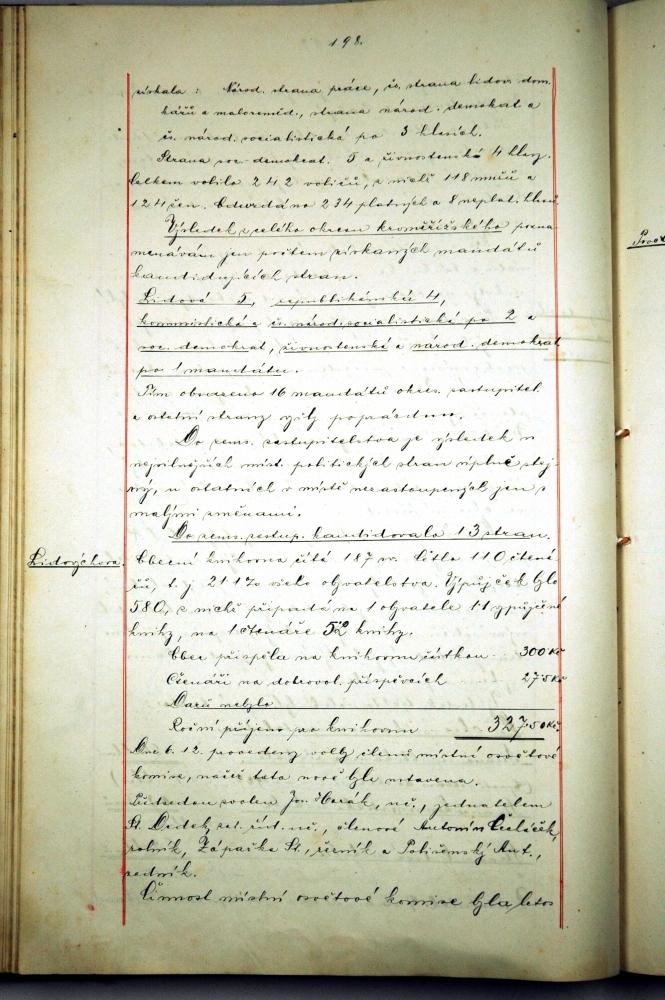 198.
získala: Národ. strana práce, čs. strana lidov. dom-
kářů a malorolníků, strana národ. demokrat a
čs. národ. socialistická po 3 hlasích.
Strana soc. demokrat. 5 a živnostenská 4 hlasy.
Celkem volilo 242 voličů, z nichž 118 mužů a
124 žen. Odevzdáno 234 platných a 8 neplat. hlasů
Výsledek z celého okresu kroměřížského pozna-
menávám jen počtem získaných mandátů
kandidujících stran.
Lidová 5, republikánská 4,
komunistická a čs. národ. socialistická po 2 a
soc. demokrat, živnostenská a národ. demokrat
po 1 mandátu.
Tím obsazeno 16 mandátů okres. zastupitel.
a ostatní strany vyšly poprázdnu.
Do zems. zastupitelstva je výsledek u
nejsilnějších míst. politických stran úplně stej-
ný, u ostatních v místě nezastoupených jen s
malými změnami.
Do zems. zastup. kandidovalo 13 stran.
Lidových ova. Obecní knihovna čítá 187 sv. Četlo 110 čtená-
řů, t. j. 21 1% všeho obyvatelstva. Výpůjček bylo
580, z nichž připadá na 1 obyvatele 1·1 vypůjčené
knihy, na 1 čtenáře 5·2 knihy.
Obec přispěla na knihovnu částkou 300 Kč
Čtenáři na dobrovol. příspěvcích 27·5 Kč
Darů nebylo
Roční příjem pro knihovnu 327·50 Kč.
Dne 6. 12. provedeny volby členů místní osvětové
komise, načež tato nově byla ustavena.
Předsedou zvolen Jos. Horák, uč., jednatelem
St. Dedek, uč., členové Antonín Čeláček,
rolník, Zápařka St., řezník a Polišenský Ant.,
zedník.
Činnost místní osvětové komise byla letos